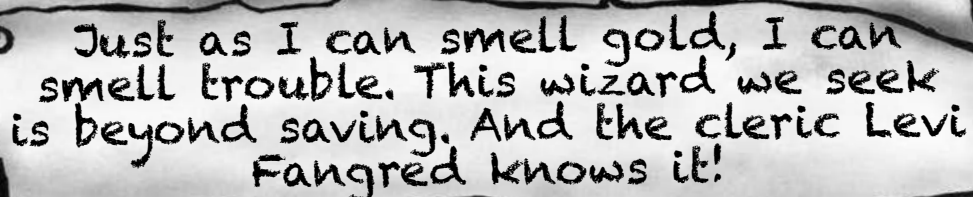 Just as I can smell gold, I can
smell trouble. This wizard we seek
is beyond saving. And the cleric Levi
Fangred knows it!